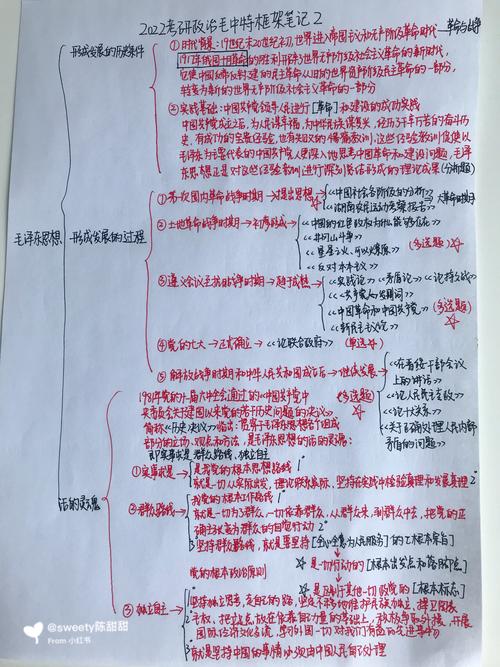 2022考研政治毛中特框架笔记2
毛泽东思想
形成发展的历史条件
①时代背景：19世纪末20世纪初，世界进入帝国主义和无产阶级革命时代——革命与战争
1917年俄国十月革命的胜利开辟了世界无产阶级社会主义革命的新时代，
转变为新的世界无产阶级社会主义革命的一部分
②实践基础：中国共产党领导人民进行[革命]和建设的成功实践
中国共产党成立之后，为人民谋幸福，为中华民族谋复兴，经历了千辛万苦的奋斗历
史，有成功的宝贵经验，也有失误的惨痛教训，这些经验教训促使以
毛泽东为主要代表的中国共产党人更深入地思考中国革命和建设问题，毛泽
东思想正是对这些经验教训进行深刻总结形成的理论成果(分析题)
形成发展的过程
①第一次国内革命战争时期→提出思想
《中国社会各阶级的分析》
《湖南农民运动考察报告》
大革命时期
②土地革命战争时期→初步形成
《中国的红色政权为什么能够存在》
《井冈山斗争》
《星星之火，可以燎原》
《反对本本主义》
(多选题)
③遵义会议至抗日战争时期→趋于成熟
《实践论》《矛盾论》《论持久战》
《〈共产党人〉发刊词》
《中国革命和中国共产党》
《新民主主义论》
(多选题)
④党的七大→正式确立→《论联合政府》(单选)
⑤解放战争时期和中华人民共和国成立后→继续发展
《在晋绥干部会议
上的讲话》
《论人民民主专政》
《论十大关系》
《关于正确处理人民内部
矛盾的问题》
(多选题)
活的灵魂
1981年党的十一届六中全会通过的《中国共产党中
央委员会关于建国以来党的若干历史问题的决议》
简称《历史决议》指出：贯穿于毛泽东思想各个组成
部分的立场、观点和方法，是毛泽东思想的活的灵魂：
即实事求是、群众路线、独立自主
①实事求是
是党的根本思想路线 1°
就是一切从实际出发，理论联系实际，坚持在实践中检验真理和发展真理 2°
②群众路线
我党的根本工作路线 1°
就是一切为了群众，一切依靠群众，从群众来，到群众中去，把党的正
确主张变为群众的自觉行动 2°
3°坚持群众路线，就是要坚持[全心全意为人民服务]的[根本宗旨]
党的根本政治原则
是一切行动的[根本出发点和落脚点]
是区别于其他一切政党的[根本标志]
③独立自主
坚持独立思考，走自己的路，坚定不移地维护民族独立、捍卫国家
主权，把立足点放在依靠自己力量的基础上，
国际经济文化交流，学习外国一切对我们有益的先进事物
就是坚持中国的事情必须由中国人民自己处理
@sweety陈甜甜
From 小红书